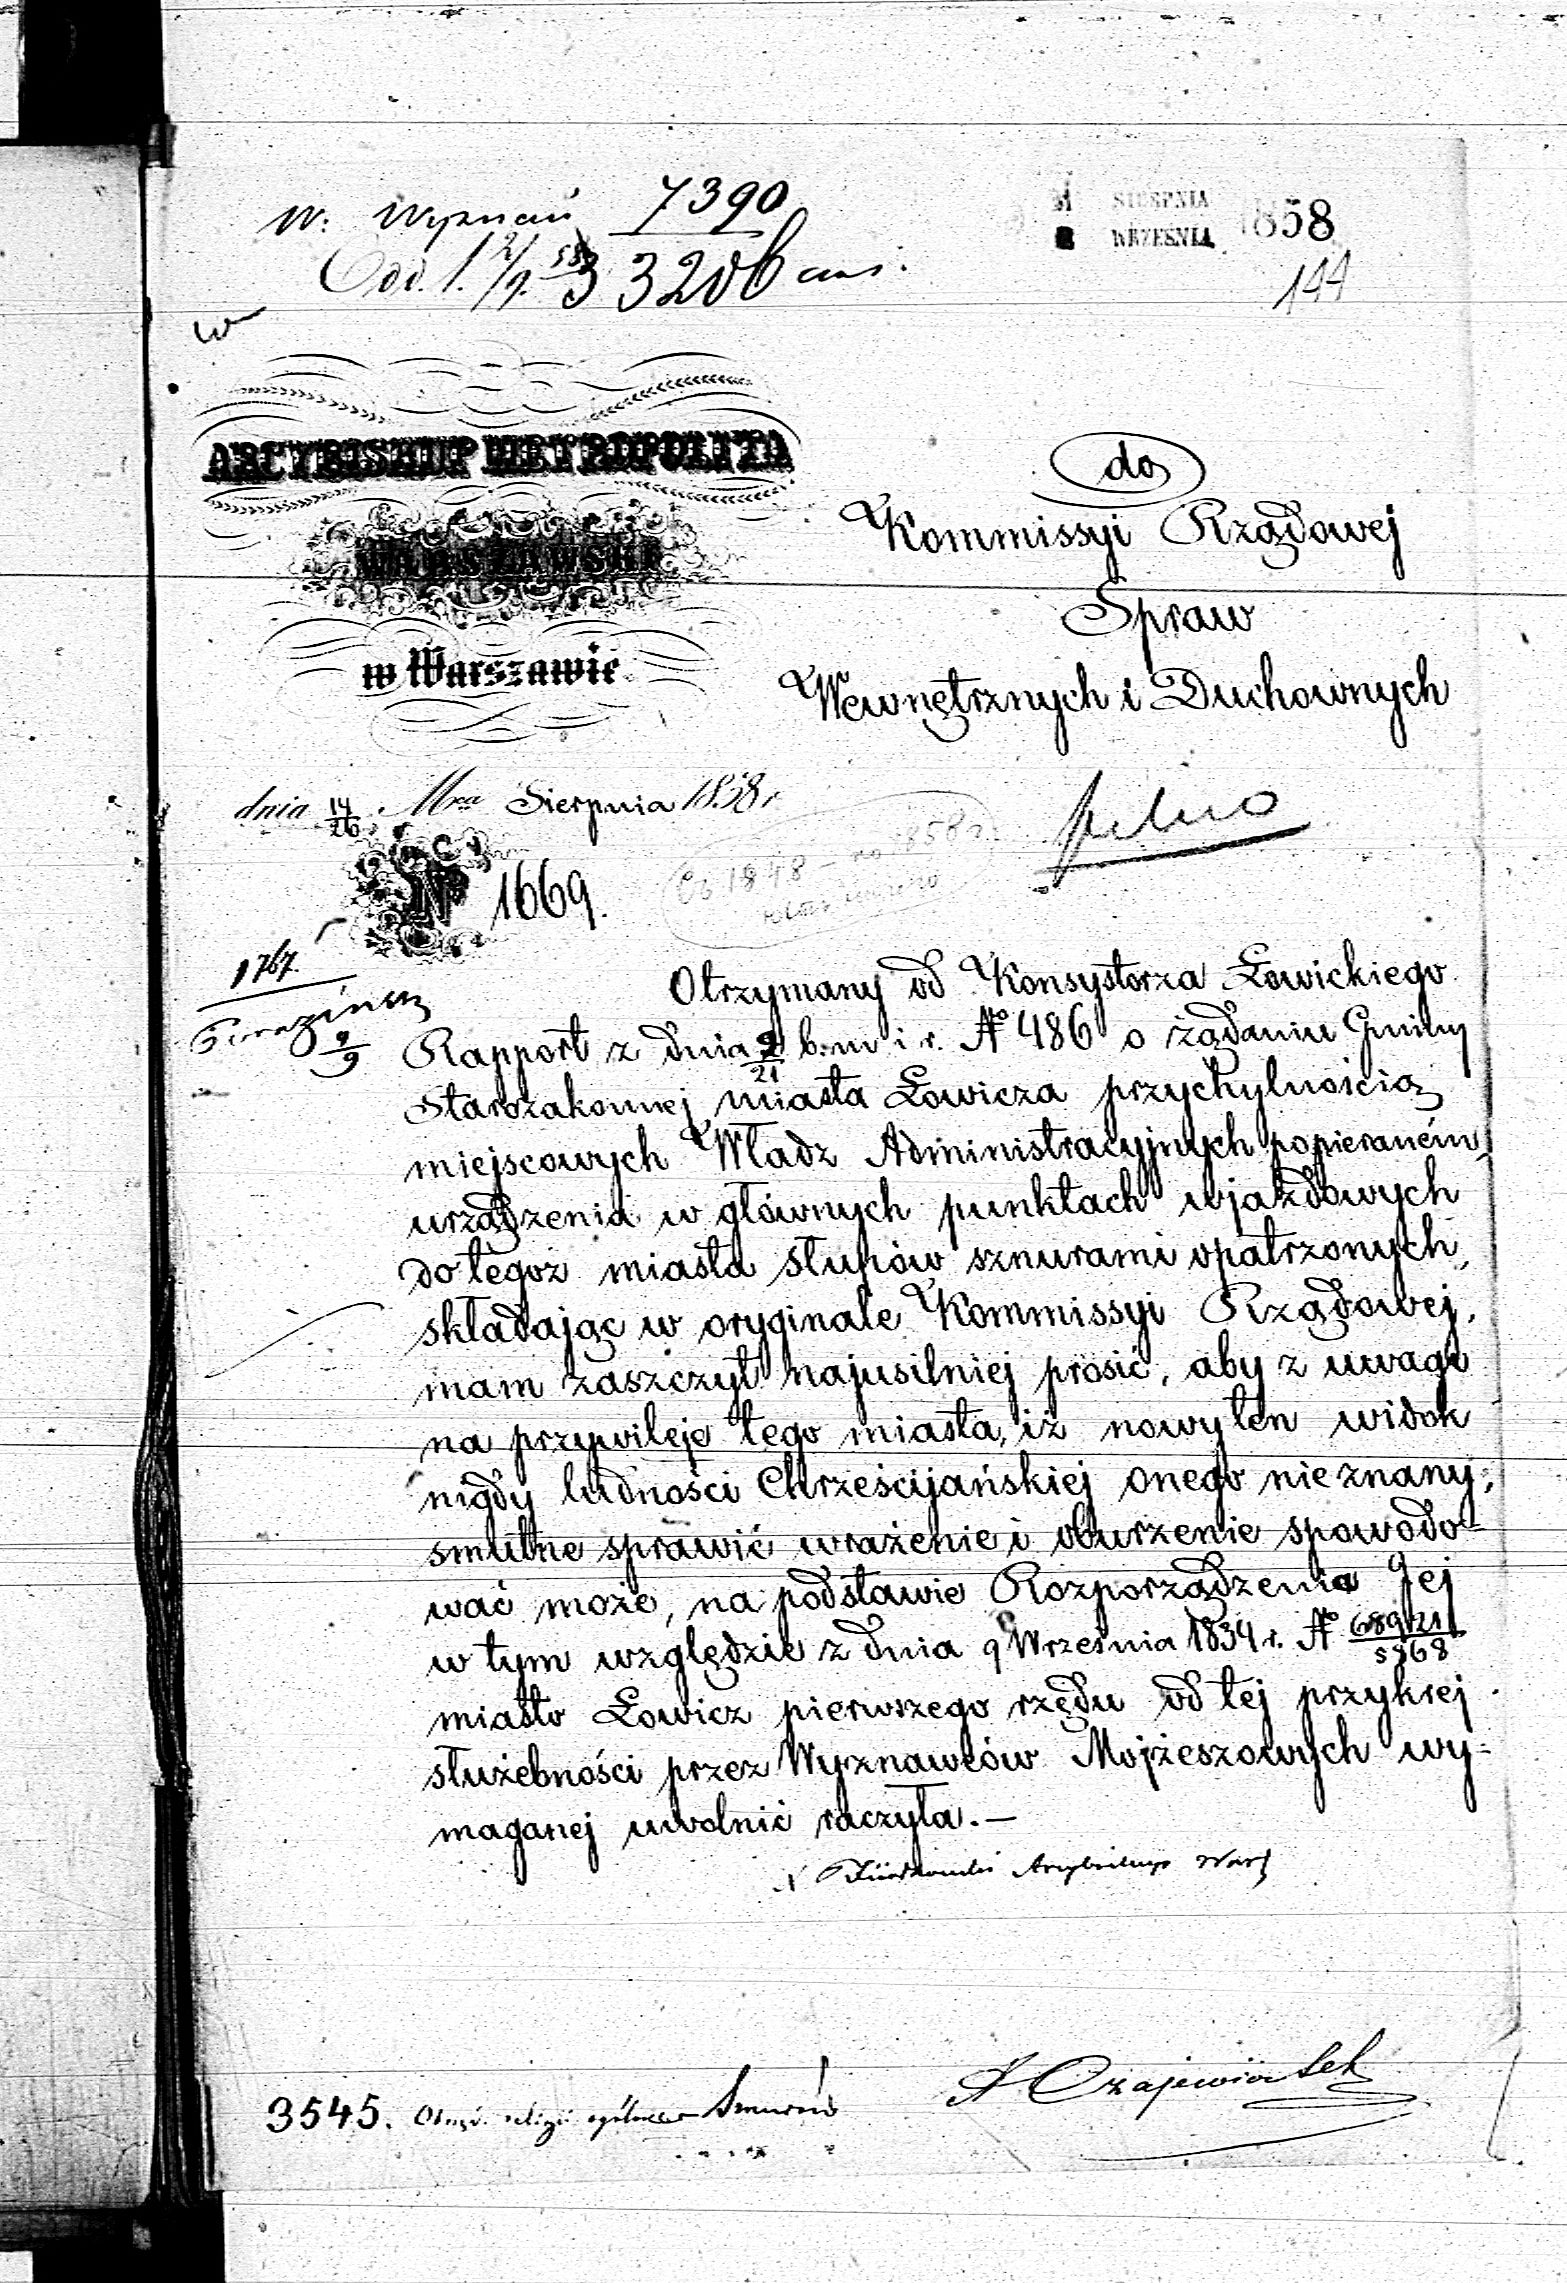 W. Wyznań 7390
Odd. 1. 2/9. 58 33206
SIERPNIA
WRZEŚNIA 1858
144
ARCYBISKUP METROPOLITA
WARSZAWSKI
w Warszawie
do
Kommissyi Rządowej
Spraw
Wewnętrznych i Duchownych
dnia 14/26 Mca Sierpnia 1858 r
pilno
№ 1669.
1767.
9/9
Otrzymany od Konsystorza Łowickiego
Rapport z dnia 9/21 b. m i r. № 486 o żądaniu Gminy
Starozakonnej miasta Łowicza przychylnością
miejscowych Władz Administracyjnych popieraném,
urządzenia w głównych punktach wjazdowych
do tegoż miasta słupów sznurami opatrzonych,
składając w oryginale Kommissyi Rządowej,
mam zaszczyt najusilniej prosić, aby z uwagi
na przywileje tego miasta, iż nowy ten widok
nigdy ludności Chrześcijańskiej onego nieznany,
smutne sprawić wrażenie i oburzenie spowodo=
wać może, na podstawie Rozporządzenia Jej
w tym względzie z dnia 9 Września 1834 r. №
miasto Łowicz pierwszego rzędu od tej przykrej
służebności przez Wyznawców Mojżeszowych wy=
maganej uwolnić raczyła. —
Fijałkowski Arcybiskup Warsz
3545. Obrząd. religii ogólne Sznurów